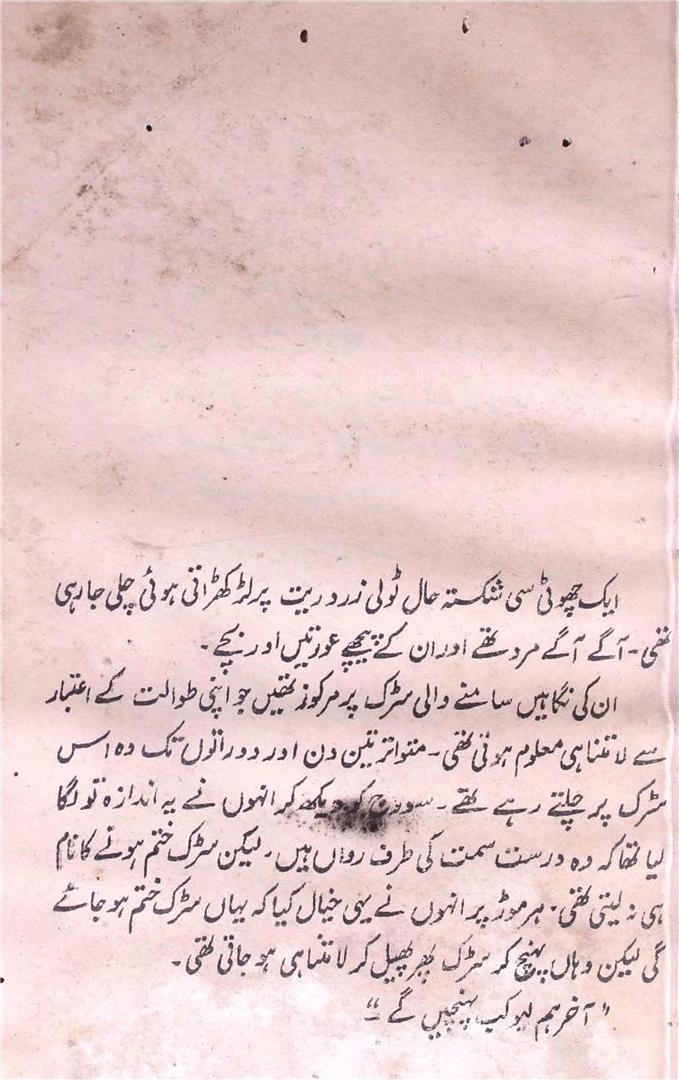 ایک چھوٹی سی شکستہ حال ٹولی زرد ریت پر لڑکھڑاتی ہوئی چلی جا رہی
تھی۔ آگے آگے مرد تھے اور ان کے پیچھے عورتیں اور بچے۔
ان کی نگاہیں سامنے والی سڑک پر مرکوز تھیں جو اپنی طوالت کے اعتبار
سے لا متناہی معلوم ہوتی تھی۔ متواتر تین دن اور دو راتوں تک وہ اس
سڑک پر چلتے رہے تھے۔ سورج کو دیکھ کر انہوں نے یہ اندازہ تو لگا
لیا تھا کہ وہ درست سمت کی طرف رواں ہیں۔ لیکن سڑک ختم ہونے کا نام
ہی نہ لیتی تھی۔ ہر موڑ پر انہوں نے یہی خیال کیا کہ یہاں سڑک ختم ہو جائے
گی لیکن وہاں پہنچ کر سڑک پھر پھیل کر لا متناہی ہو جاتی تھی۔
"آخر ہم لبو کب پہنچیں گے"